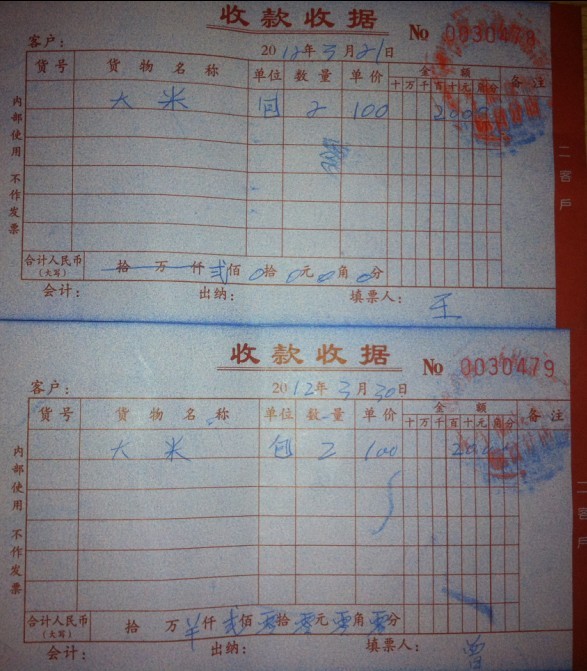 收款收据
No 0030478
客户:
2012年3月21日
货号 货物名称 单位 数量 单价 金额 备注
十万千百十元角分
大米 包 2 100 20000
内部使用 不作发票
二客戶
合计人民币(大写) 拾万仟贰佰0拾0元0角0分
会计: 出纳: 填票人: 王
收款收据
No 0030479
客户:
2012年3月30日
货号 货物名称 单位 数量 单价 金额 备注
十万千百十元角分
大米 包 2 100 20000
内部使用 不作发票
二客戶
合计人民币(大写) 拾万 仟贰佰零拾零元零角零分
会计: 出纳: 填票人: 曾